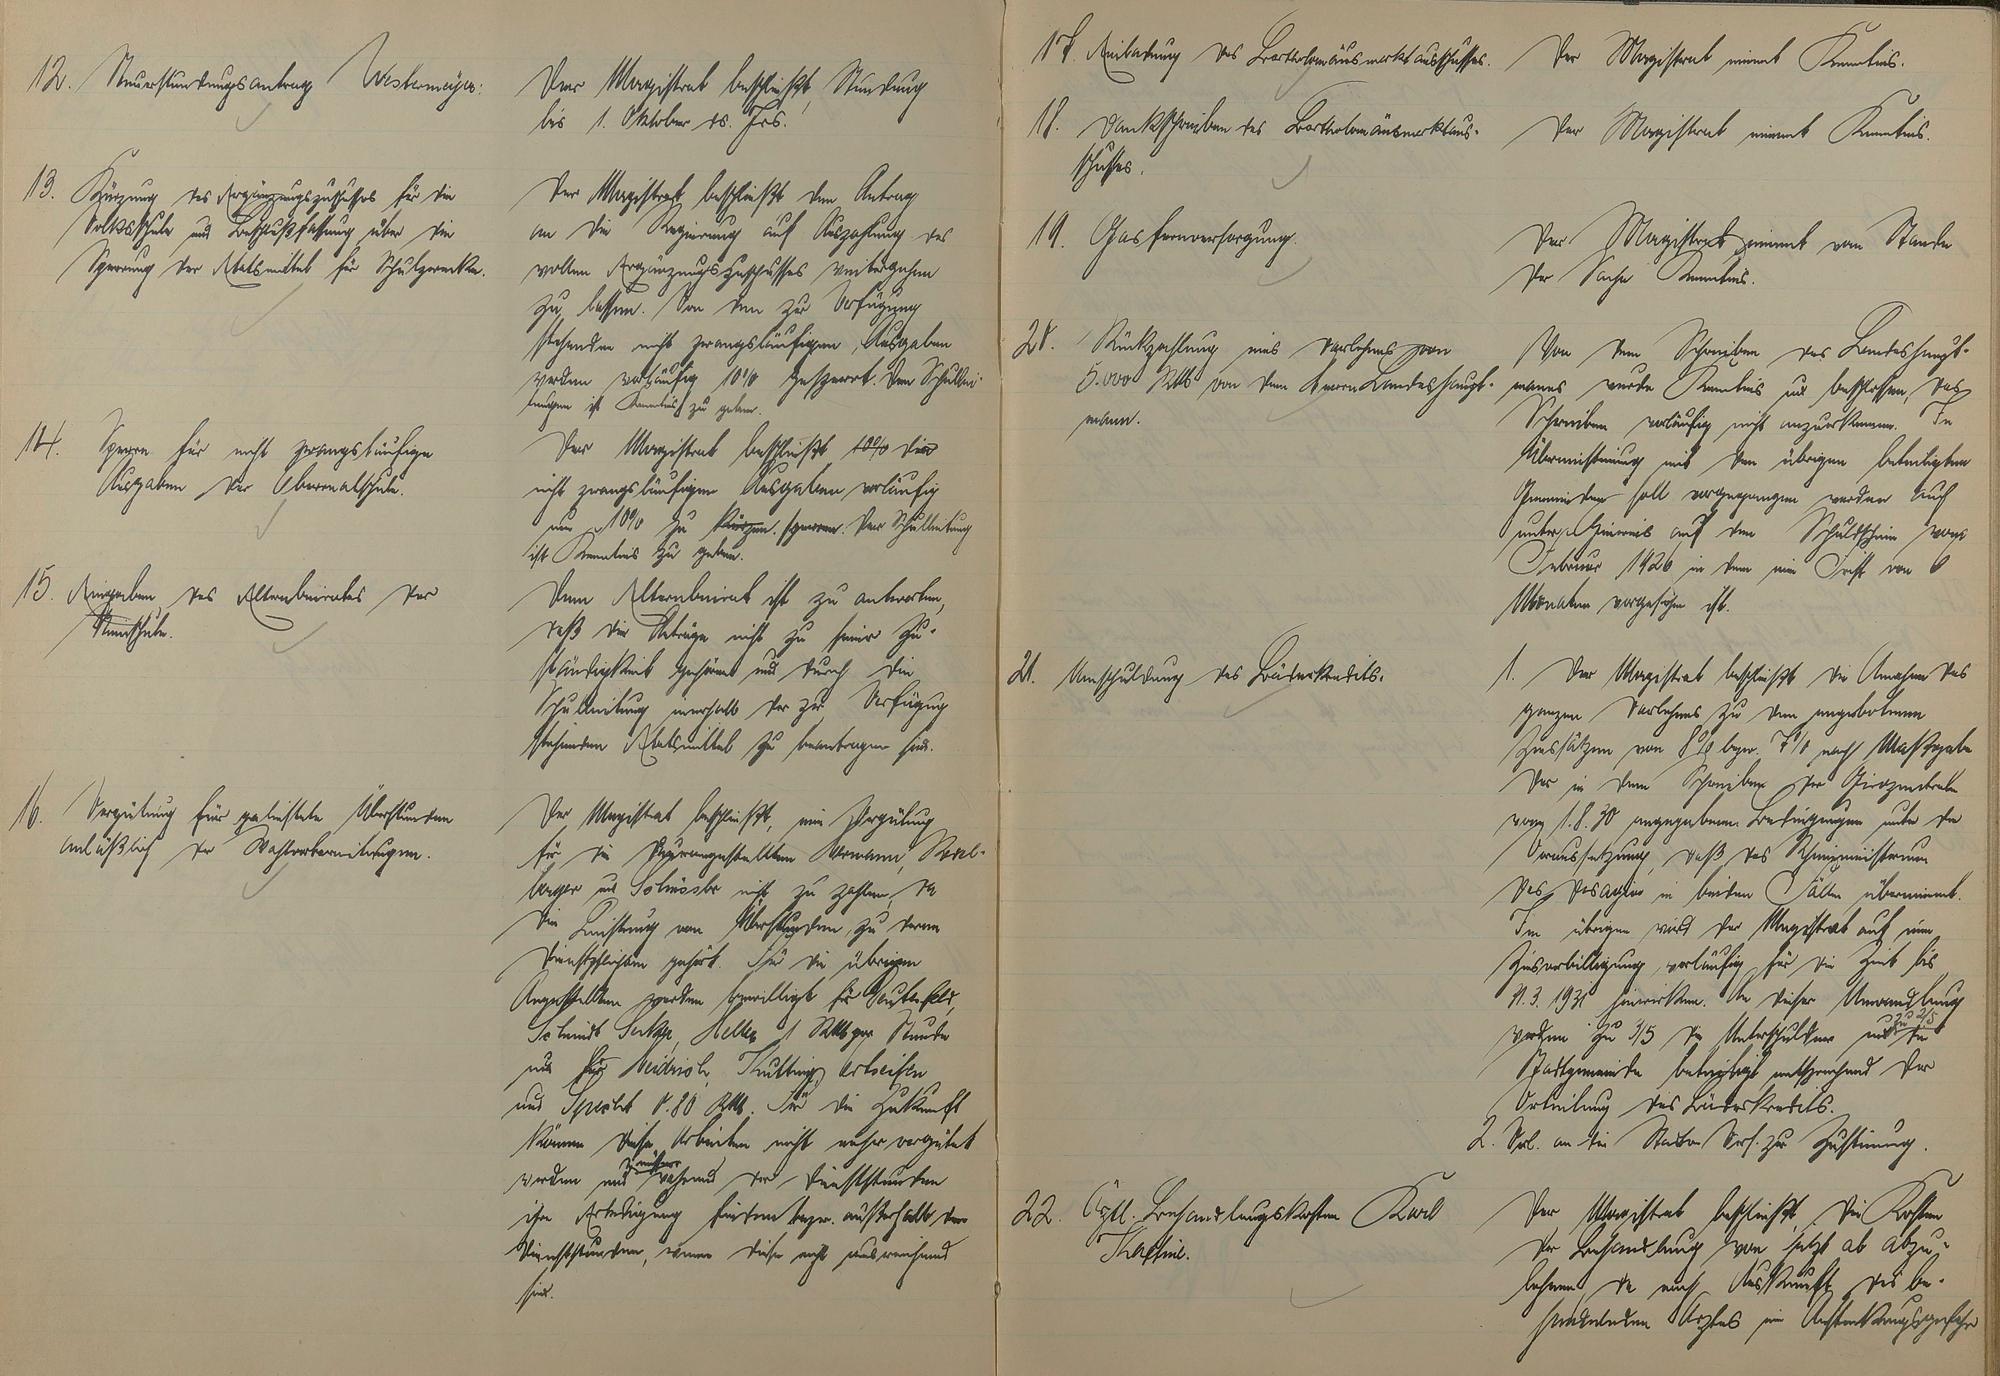 12. Steuerstundungsantrag Westermeyer:
Der Magistrat beschließt, Stundung
bis 1. Oktober ds. Jrs.
13. Kürzung des Ergänzungszuschusses für die
Volksschule und Beschlußfassung über die
Sperrung der Etatsmittel für Schulzwecke.
Der Magistrat beschließt den Antrag
an die Regierung auf Auszahlung des
vollen Ergänzungszuschusses weitergehen
zu lassen. Von den zur Verfügung
stehenden nicht zwangsläufigen Ausgaben
werden vorläufig 10% gesperrt. Den Schullei-
tungen ist Kenntnis zu geben.
14. Sperre für nicht zwangsläufige
Ausgaben der Oberrealschule.
Der Magistrat beschließt 10% die
nicht zwangsläufigen Ausgaben vorläufig
um 10% zu kürzen. sperren. Der Schulleitung
ist Kenntnis zu geben.
15. Eingaben des Elternbeirates der
schule.
Dem Elternbeirat ist zu antworten,
daß die Anträge nicht zu seiner Zu-
ständigkeit gehören und durch die
Schulleitung innerhalb der zur Verfügung
stehenden Etatsmittel zu beantragen sind.
16. Vergütung für geleistete Überstunden
anläßlich der Wahlvorbereitungen.
Der Magistrat beschließt, eine Vergütung
für die Büroangestellten
und nicht zu zahlen, da
die Leistung von Überstunden zu deren
Dienstpflichten gehört. Für die übrigen
Angestellten werden bewilligt für
Schmidt 1 RM per Stunde
und für
und Specht 0.80 RM. Für die Zukunft
können diese Arbeiten nicht mehr vergütet
werden und müssen während der Dienststunden
ihre Erledigung finden bezw. außerhalb der
Dienststunden, wenn diese nicht ausreichend
sind.
17. Einladung des Bartholomäusmarktausschusses.
Der Magistrat nimmt Kenntnis.
18. Dankschreiben des Bartholomäusmarktaus-
schusses.
Der Magistrat nimmt Kenntnis.
19. Gasfernversorgung.
Der Magistrat nimmt vom Stande
der Sache Kenntnis.
20. Rückzahlung eines Darlehens von
5.000 RM von dem Herrn Landeshaupt-
mann.
Von dem Schreiben des Landeshaupt-
manns wurde Kenntnis und beschlossen, das
Schreiben vorläufig nicht anzuerkennen. In
Übereinstimmung mit den übrigen beteiligten
Gemeinden soll vorgegangen werden auch
unter Hinweis auf den Schuldschein vom
Februar 1926 in dem eine Frist von 6
Monaten vorgesehen ist.
21. Umschuldung des Bäderkredits.
1. Der Magistrat beschließt die Annahme des
ganzen Darlehens zu den angebotenen
Zinssätzen von 8% bezw. 7% nach Maßgabe
der in dem Schreiben der Girozentrale
vom 1.8.30 angegebenen Bedingungen unter der
Voraussetzung, daß das Reichsministerium
das Disagio in beiden Fällen übernimmt.
Im übrigen wird der Magistrat auf eine
Zinsverbilligung vorläufig für die Zeit bis
31.3.1931 hinwirken. An dieser Umwandlung
werden zu 3/5 die Unterschuldner und zu 2/5 die
Stadtgemeinde beteiligt entsprechend der
Verteilung des Bäderkredits.
2. Vorl. an die Stadtv. Vers. zur Zustimmung.
22. Ärztl. Behandlungskosten Karl
Der Magistrat beschließt, die Kosten
der Behandlung von jetzt ab abzu-
lehnen, da nach Auskunft des be-
handelnden Arztes eine Ansteckungsgefahr